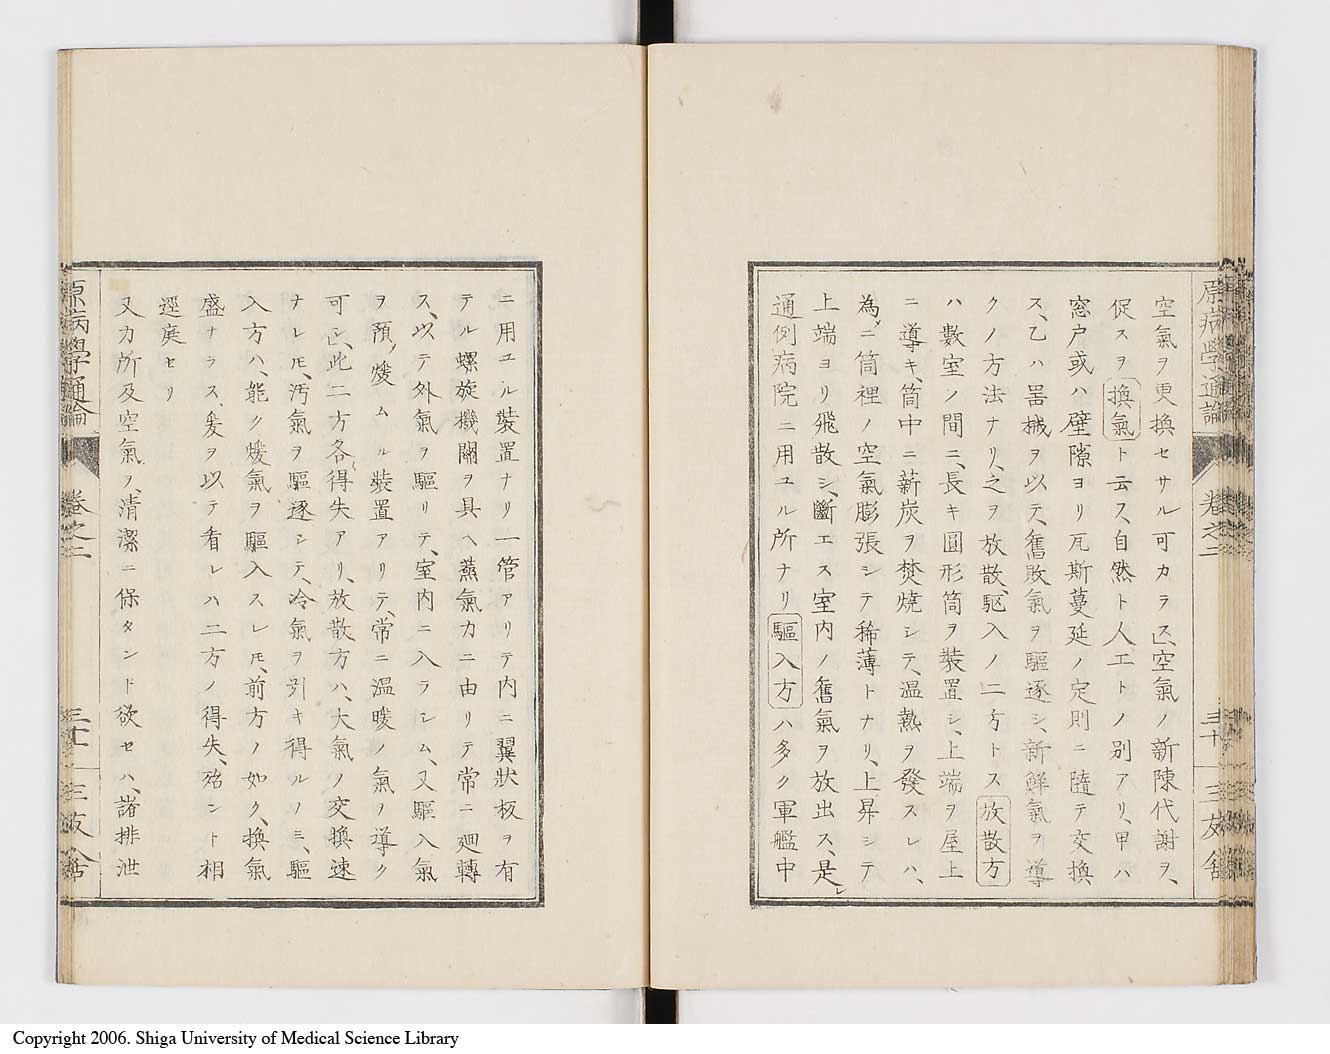 原病學通論
卷之二
三十一
三友舍
空氣ヲ更換セサル可カラス」空氣ノ新陳代謝ヲ、
促スヲ換氣ト云ス、自然ト人工トノ別アリ、甲ハ
窓戸或ハ壁隙ヨリ瓦斯蔓延ノ定則ニ隨テ交換
ス、乙ハ噐械ヲ以テ、舊敗氣ヲ驅逐シ、新鮮氣ヲ導
クノ方法ナリ、之ヲ放散、駆入ノ二方トス放散方
ハ數室ノ間ニ、長キ圓形筒ヲ裝置シ、上端ヲ屋上
ニ導キ、筒中ニ薪炭ヲ焚燒シテ、温熱ヲ發スレハ、
為メニ筒裡ノ空氣膨張シテ稀薄トナリ、上昇シテ
上端ヨリ飛散シ、斷エス室内ノ舊氣ヲ放出ス、是レ
通例病院ニ用ユル所ナリ驅入方ハ多ク軍艦中
ニ用ユル裝置ナリ一管アリテ内ニ翼狀板ヲ有
テル螺旋機關ヲ具ヘ蒸氣力ニ由リテ常ニ廻轉
ス、以テ外氣ヲ驅リテ、室内ニ入ラシム、又驅入氣
ヲ預メ煖ムル裝置アリテ、常ニ温暖ノ氣ヲ導ク
可シ」、此二方各得失アリ、放散方ハ、大氣ノ交換速
ナレ𪜈、汚氣ヲ驅逐シテ、冷氣ヲ引キ得ルノミ、驅
入方ハ、能ク煖氣ヲ驅入スレ𪜈、前方ノ如ク、換氣
盛ナラス、爰ヲ以テ看レハ二方ノ得失、殆ント相
逕庭セリ
又力所及空氣ヲ、清潔ニ保タンド欲セハ、諸排泄
原病學通論
卷之二
三十一
三友舍
Copyright 2006. Shiga University of Medical Science Library